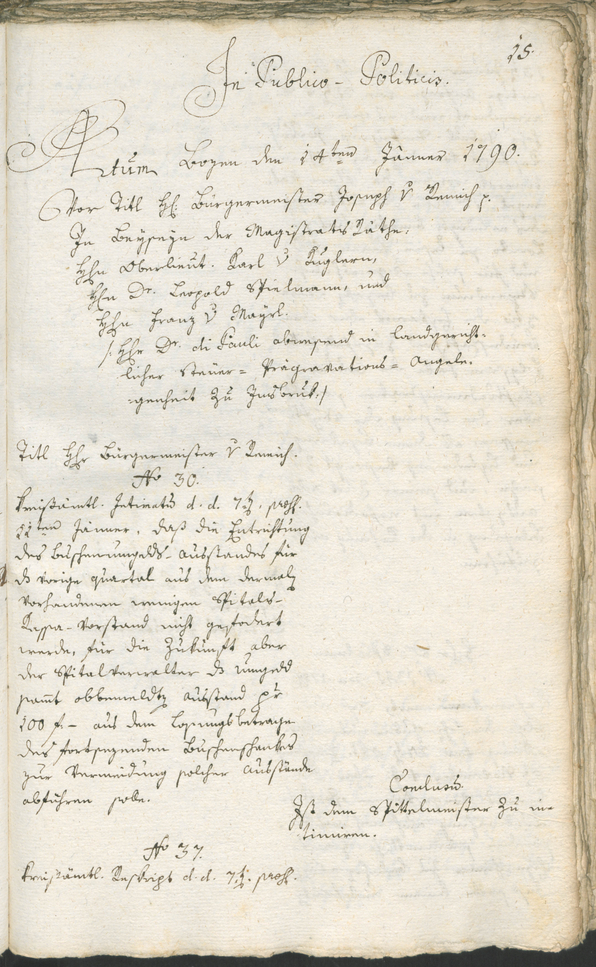 15.
In Publico-Politicis.
Actum Bozen den 14ten Jänner 1790.
Vor Titl H: Bürgermeister Joseph v Remich p.
In Beyseyn der Magistrats Räthe,
Hhn Oberlieut. Karl v Kuglern,
Hhn Dr. Leopold Spielmann, und
Hhn Franz v Mayrl.
/: Hhr Dr. di Pauli abwesend in landgericht-
licher Steuer= Prägravations= Angele-
genheit zu Insbruk./
Titl Hhr Bürgermeister v Remich.
No 30.
Kreißämtl. Intimatū d. d. 7t. praes.
11ten Jänner, daß die Entrichtung
des Buschenumgelds-Ausstandes für
dz vorige quartal aus dem dermalz
vorhandenen wenigen Spitals-
Kassa-Vorstand nicht gefodert
werde, für die Zukunft aber
der Spitalverwalter dz umgeld
samt obbemeldtz Ausstand pr
100 f.- aus dem Losungsbetrage
des fortsezenden Buschenschankes
zur Vermeidung solcher Ausstände
abführen solle.
Conclusū
Ist dem Spittelmeister zu in-
timiren.
No 37.
Kreißämtl. Reskript d. d. 7t. praes.